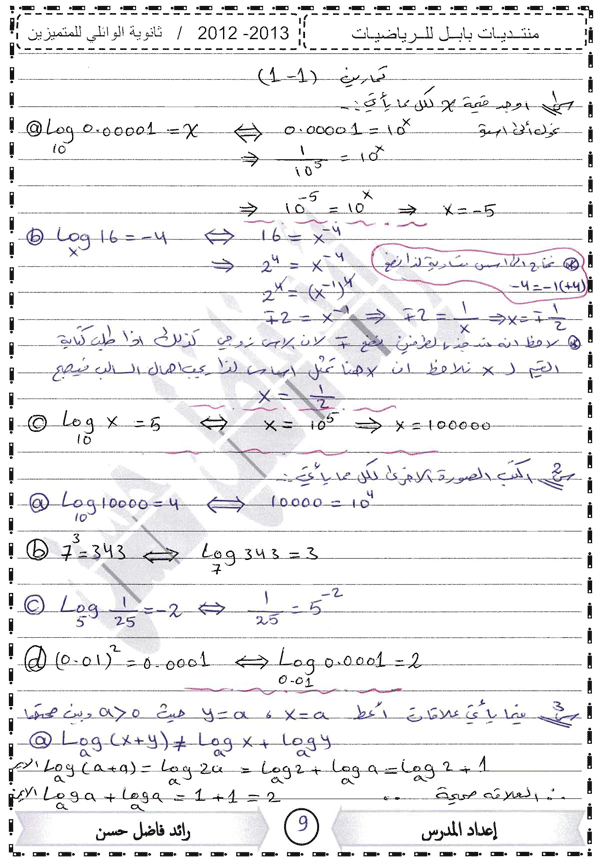 منتديات بابل للرياضيات
ثانوية الوائلي للمتميزين / 2012 -2013
تمارين (1-1)
س1 اوجد قيمة x لكل مما يأتي :-
ⓐ Log₁₀ 0.00001 = x ⇔ 0.00001 = 10ˣ
⇒ 1/10⁵ = 10ˣ
⇒ 10⁻⁵ = 10ˣ ⇒ x = -5
ⓑ Logₓ 16 = -4 ⇔ 16 = x⁻⁴
⇒ 2⁴ = x⁻⁴
-4 = -1(+4)
2⁴ = (x⁻¹)⁴
∓2 = x⁻¹ ⇒ ∓2 = 1/x ⇒ x = ∓1/2
لاحظ انه عند جذر الطرفين نضع ∓ لان الاس زوجي كذلك اذا طلب كتابة
القيم لـ x نلاحظ ان x هنا تمثل اساس لذا يجب اهمال السالب فيصبح
x = 1/2
ⓒ Log₁₀ x = 5 ⇔ x = 10⁵ ⇒ x = 100000
س2 اكتب الصورة الاخرى لكل مما يأتي :-
ⓐ Log₁₀ 10000 = 4 ⇔ 10000 = 10⁴
ⓑ 7³ = 343 ⇔ Log₇ 343 = 3
ⓒ Log₅ 1/25 = -2 ⇔ 1/25 = 5⁻²
ⓓ (0.01)² = 0.0001 ⇔ Log₀.₀₁ 0.0001 = 2
س3 فيما يأتي علاقات أعط x = a ، y = a حيث a > 0 وبين صحتها
ⓐ Logₐ(x+y) ≠ Logₐ x + Logₐ y
Logₐ(a+a) = Logₐ 2a = Logₐ 2 + Logₐ a = Logₐ 2 + 1
Logₐ a + Logₐ a = 1 + 1 = 2
∴ العلاقة صحيحة
إعداد المدرس
9
رائد فاضل حسن